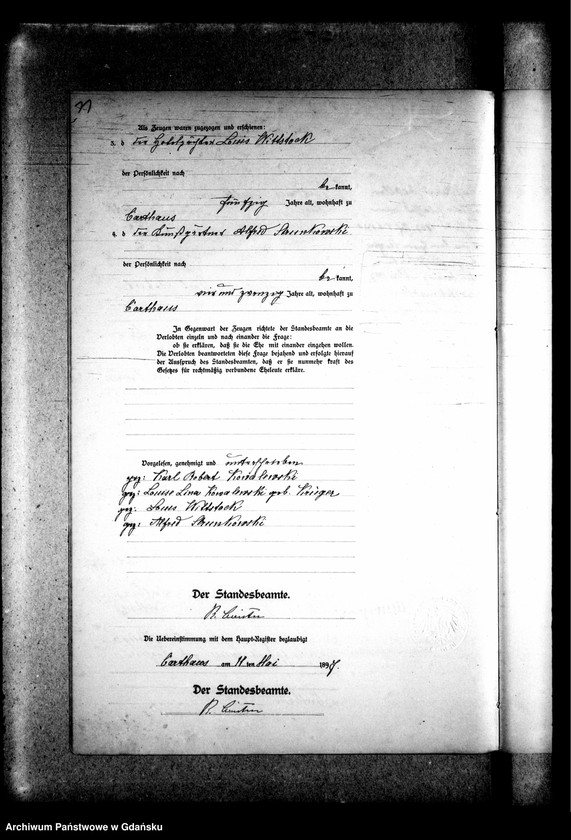 Als Zeugen waren zugezogen und erschienen:
3. d er Hotelpächter Louis Wittstock
der Persönlichkeit nach
be kannt,
fünfzig Jahre alt, wohnhaft zu
Carthaus
4. d er Kunstgärtner Alfred
der Persönlichkeit nach
be kannt,
vier und zwanzig Jahre alt, wohnhaft zu
Carthaus
In Gegenwart der Zeugen richtete der Standesbeamte an die
Verlobten einzeln und nach einander die Frage:
ob sie erklären, daß sie die Ehe mit einander eingehen wollen.
Die Verlobten beantworteten diese Frage bejahend und erfolgte hierauf
der Ausspruch des Standesbeamten, daß er sie nunmehr kraft des
Gesetzes für rechtmäßig verbundene Eheleute erkläre.
Vorgelesen, genehmigt und unterschrieben
gez: Karl Robert Kowalewski
gez: Louise Lina Kowalewski geb. Krüger
gez: Louis Wittstock
gez: Alfred
Der Standesbeamte.
Die Uebereinstimmung mit dem Haupt-Register beglaubigt
Carthaus am 11. ten Mai 189
Der Standesbeamte.
Archiwum Państwowe w Gdańsku